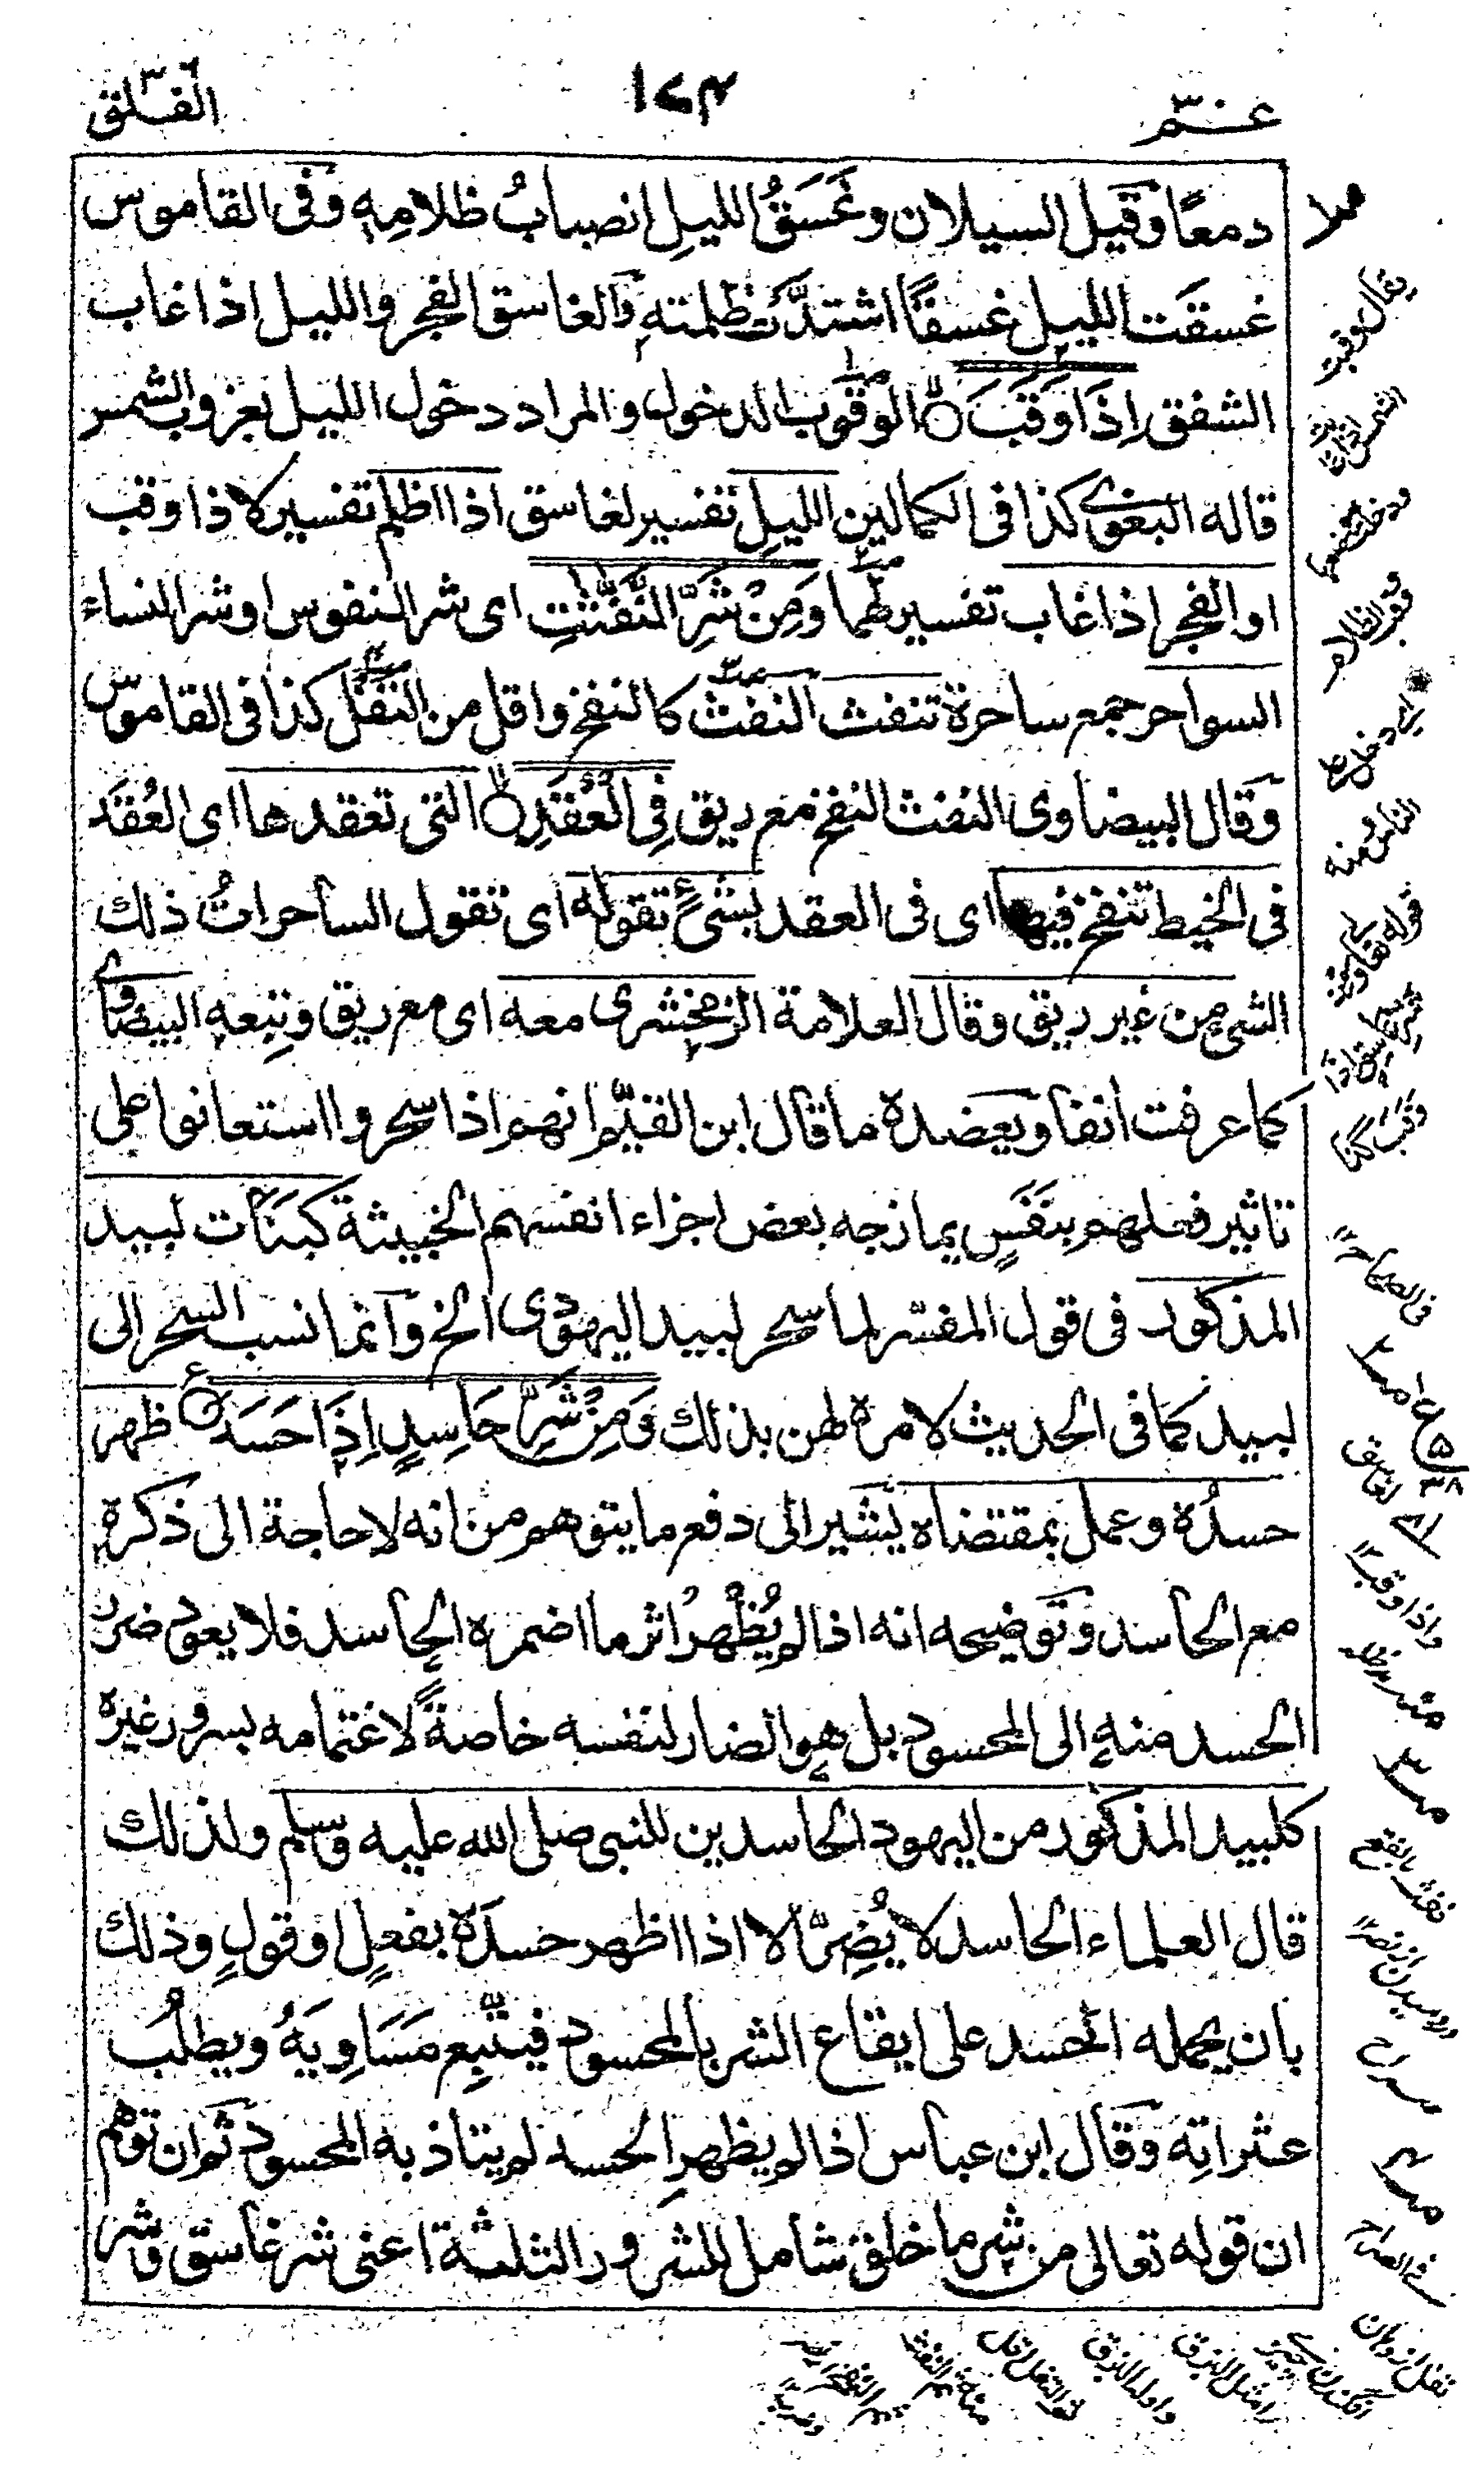 عم ٣٠
١٧٣
الفلق
دمعًا وقيل السيلان وغَسَقُ الليلِ انصبابُ ظلامِهٖ وفی القاموس
غسقَت الليل غسقًا اشتدَّت ظلمته والغاسق الفجر والليل اذا غاب
الشفق اِذَا وَقَبَ الوقوب الدخول والمراد دخول الليل بغروب الشمس
قاله البغوی كذا فی الكمالين الليلِ تفسير لغاسق اذا اظلم تفسير لاذا وقب
او الفجر اذا غاب تفسير لهما وَمِنْ شَرِّ النَّفّٰثٰتِ ای شر النفوس او شر النساء
السواحر جمع ساحرة تنفث النفث كالنفخ واقل من التفل كذا فی القاموس
وقال البيضاوی النفث النفخ مع ريق فِی الْعُقَدِ التی تعقدها ای العُقَد
فی الخيط تنفخ فيها ای فی العقد بشیٍٔ تقوله ای تقول الساحراتُ ذلك
الشئ من غير ريق وقال العلامة الزمخشری معه ای مع ريق وتبعه البيضاوی
كما عرفت انفا ويعضده ما قال ابن القيّم انهم اذا سحروا استعانوا علی
تاثير فعلهم بنَفَسٍ يمازجه بعض اجزاء انفسهم الخبيثة كبَنَات لبيد
المذكور فی قول المفسّر لما سحر لبيد اليهودی الخ وانما نسب السحر الی
لبيد كما فی الحديث لامره لهن بذلك وَمِنْ شَرِّ حَاسِدٍ اِذَا حَسَدَ ظهر
حسدُه وعمل بمقتضاه يشير الی دفع ما يتوهم من انه لا حاجة الی ذكره
مع الحاسد وتوضيحه انه اذا لم يُظْهِرْ اثر ما اضمره الحاسد فلا يعود ضرر
الحسد منه الی المحسود بل هو الضار لنفسه خاصةً لاغتمامه بسرور غيره
كلبيد المذكور من اليهود الحاسدين للنبی صلی الله عليه وسلم ولذلك
قال العلماء الحاسد لا يُضِرُّ الا اذا اظهر حسدَه بفعلٍ او قولٍ وذلك
بان يحمله الحسد علی ايقاع الشر بالمحسود فيتّبِع مَسَاوِيَهٗ ويطلُب
عثراتِه وقال ابن عباس اذا لم يظهر الحسد لم يتاذ به المحسود ثم ان توهم
ان قوله تعالی من شر ما خلق شامل للشرور الثلثة اعنی شر غاسق وشر
يقال وقبت
الشمس اذا غابت
الناس منه
قوله تعالی ومن
شر غاسق اذا
وقب كذا
فی الصراح
لغاسق
واذا وقب
صراح
تفل